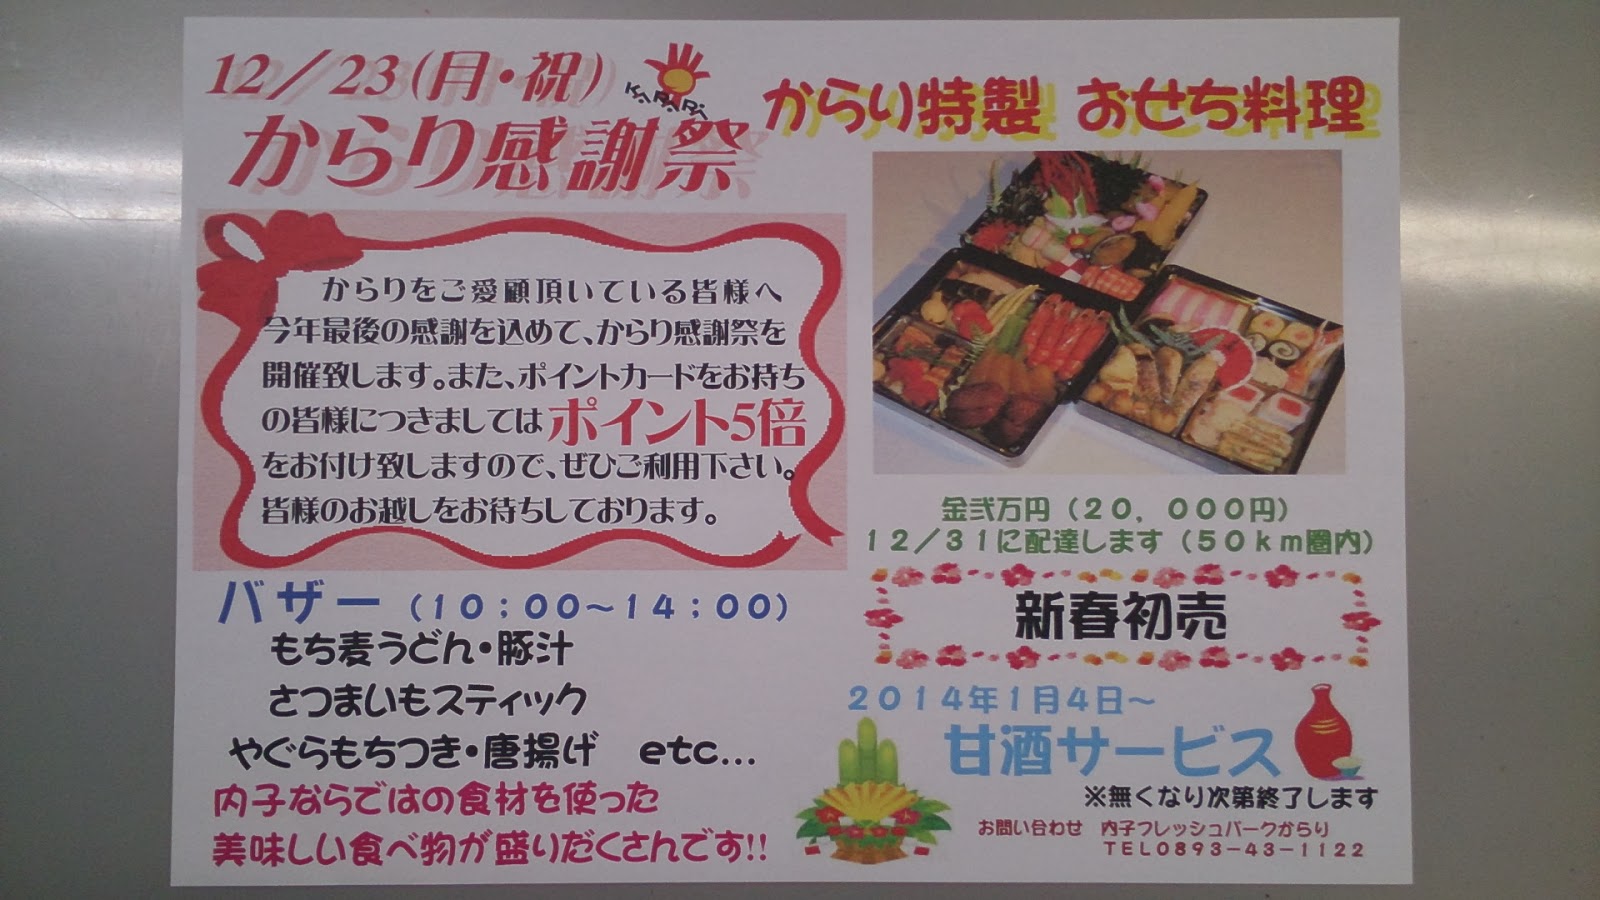 12/23(月・祝)
からり感謝祭
からりをご愛顧頂いている皆様へ
今年最後の感謝を込めて、からり感謝祭を
開催致します。また、ポイントカードをお持ち
の皆様につきましてはポイント5倍
をお付け致しますので、ぜひご利用下さい。
皆様のお越しをお待ちしております。
バザー（１０；００～１４；００）
もち麦うどん・豚汁
さつまいもスティック
やぐらもちつき・唐揚げ　etc…
内子ならではの食材を使った
美味しい食べ物が盛りだくさんです!!
からり特製 おせち料理
金弐万円（２０，０００円）
１２／３１に配達します（５０ｋｍ圏内）
新春初売
２０１４年１月４日～
甘酒サービス
※無くなり次第終了します
お問い合わせ　内子フレッシュパークからり
ＴＥＬ０８９３－４３－１１２２